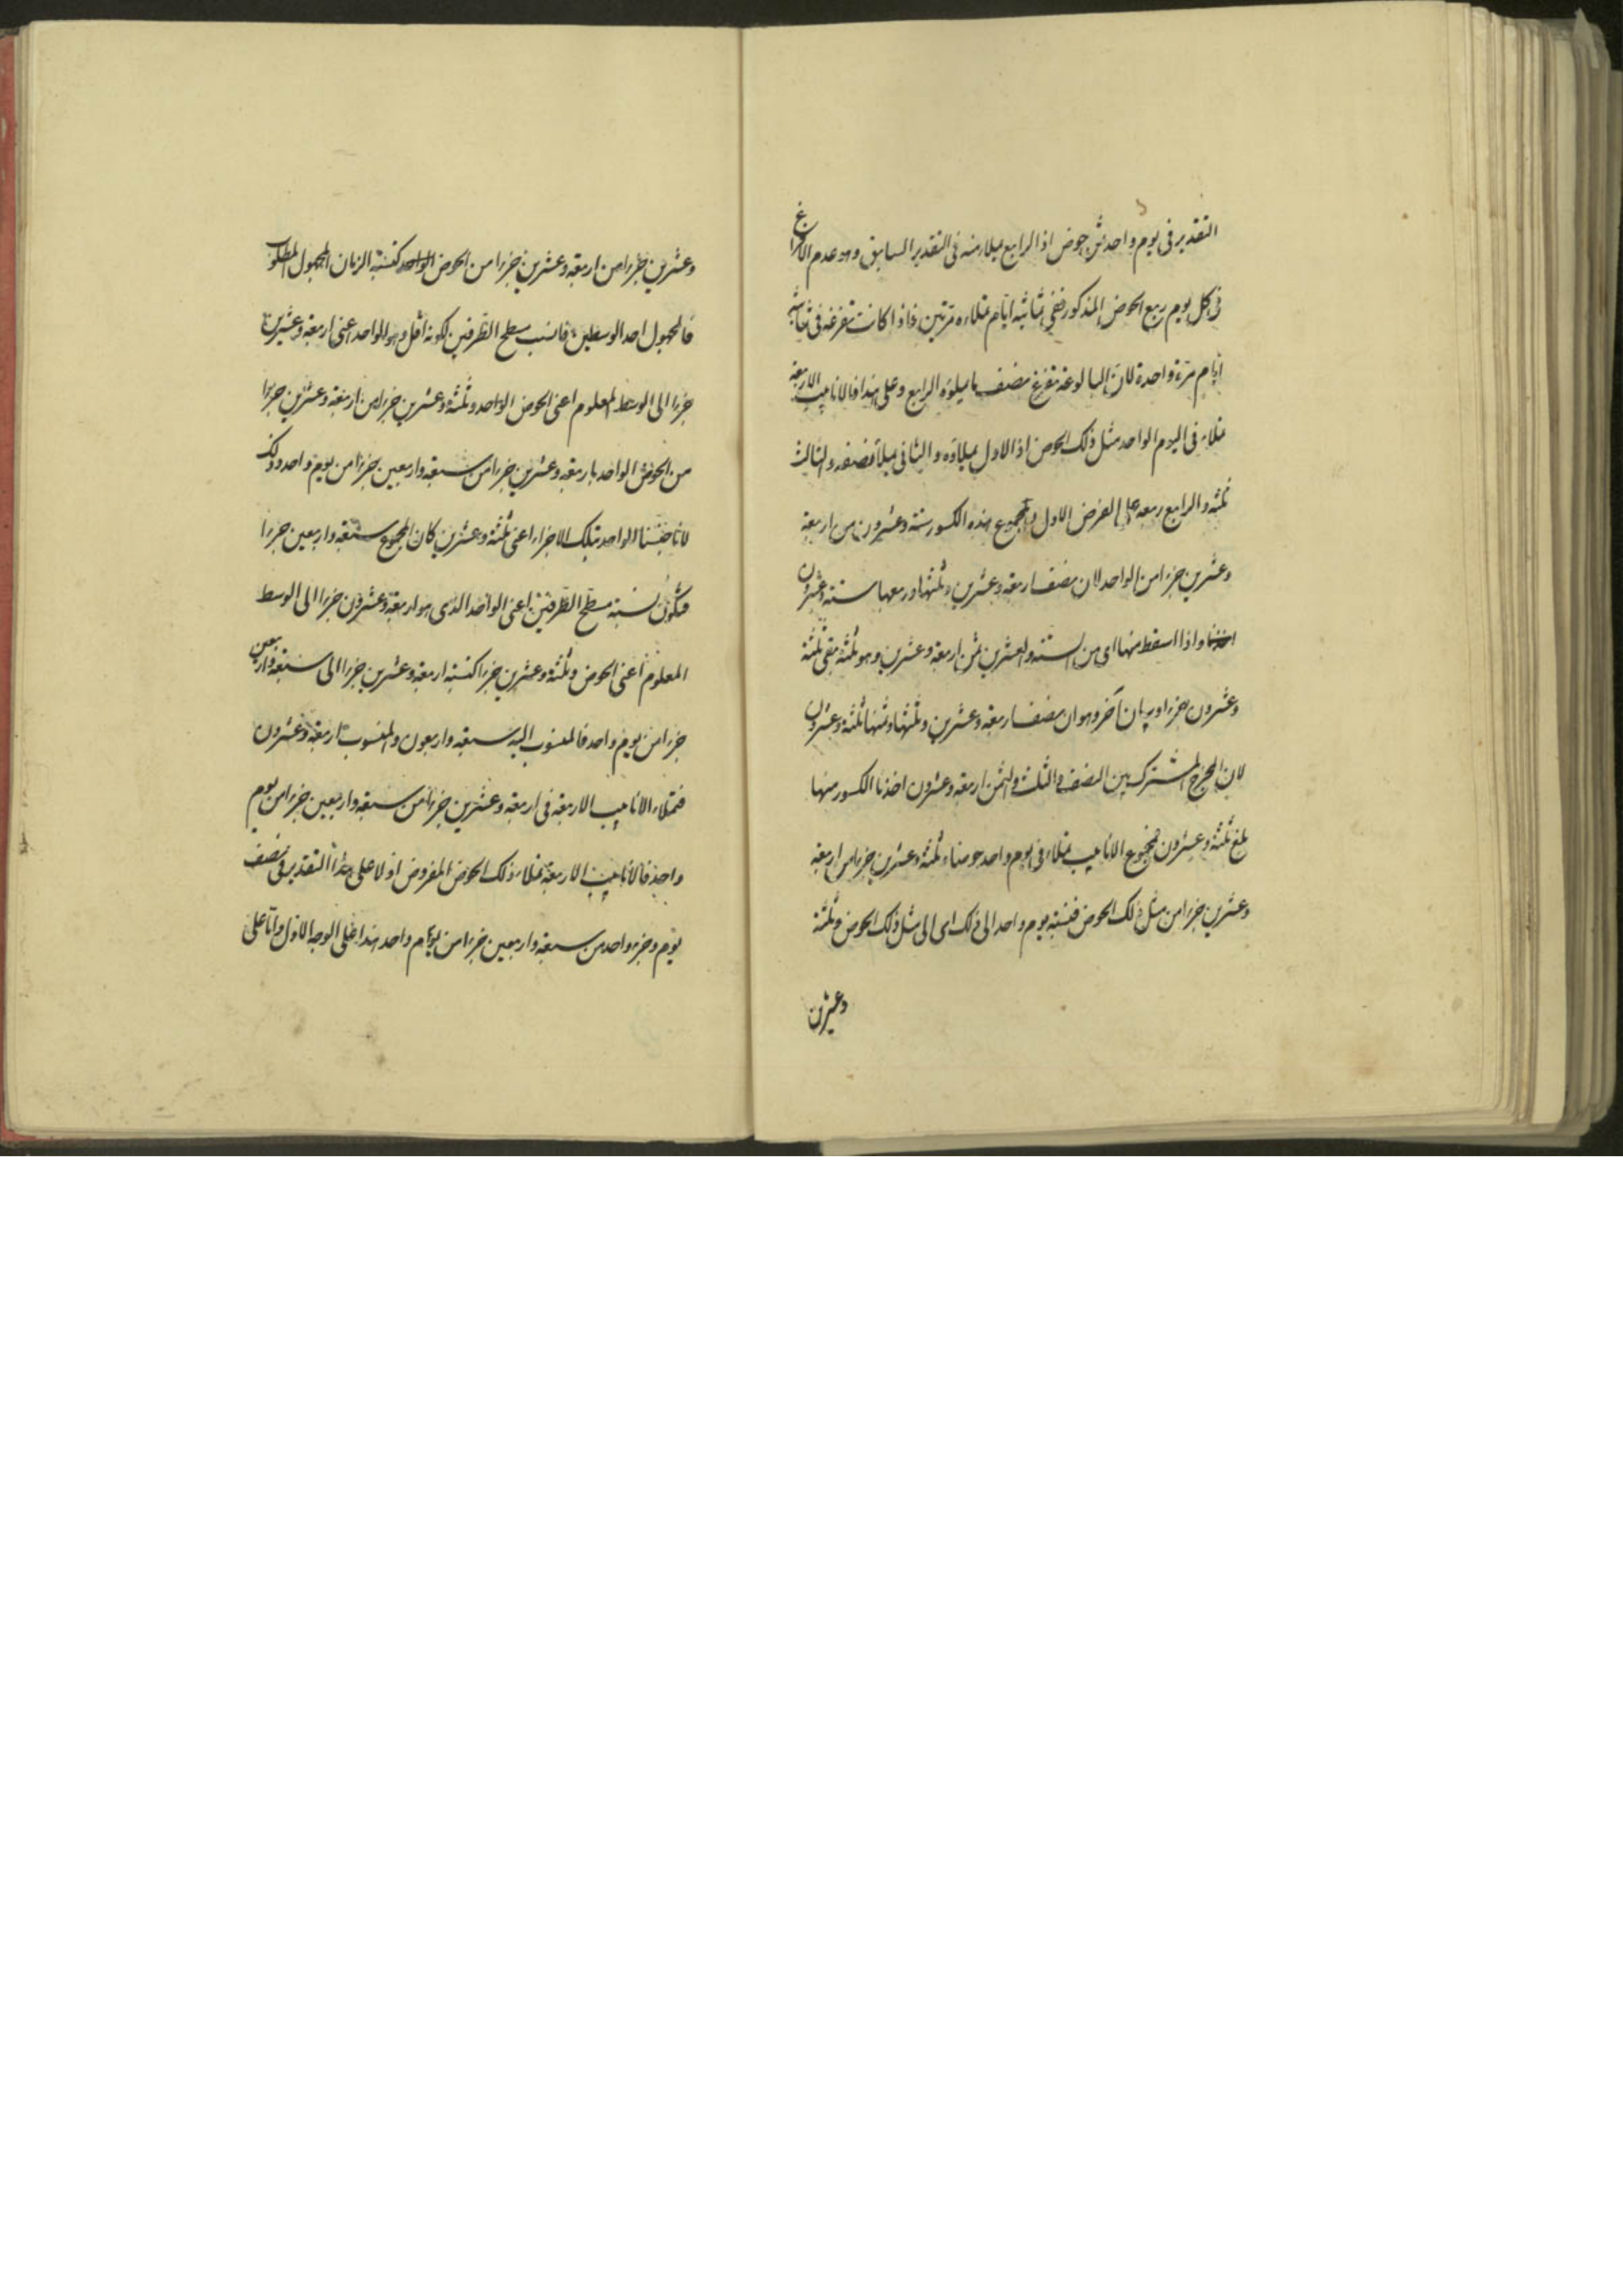 التقدير فى يوم واحد ثمن حوض اذ الرابع يملاء منه فى التقدير السابق وهو عدم الافراغ
فى كل يوم ربع الحوض المذكور ففى ثمانية ايام تملاءه مرتين فاذا كانت تفرغه فى ثمانية
ايام مرة واحدة لان البالوعة تفرغ نصف ما يملوه الرابع وعلى هذا فالانابيب الاربعة
تملاء فى اليوم الواحد مثل ذلك الحوض اذ الاول يملاؤه والثانى يملاء نصفه والثالث
ثلثه والرابع ربعه على الفرض الاول ومجموع هذه الكسور ستة وعشرون من اربعة
وعشرين جزءا من الواحد لان نصف اربعة وعشرين وثلثها وربعها ستة وعشرون
واذا اسقط منها اى من الستة والعشرين ثمن اربعة وعشرين وهو ثلثة بقى ثلثة
وعشرون جزءا وبيان آخر وهو ان نصف اربعة وعشرين وثلثها وثمنها ثلثة وعشرون
لان المخرج المشترك بين النصف والثلث والثمن اربعة وعشرون اخذنا الكسور منها
بلغ ثلثة وعشرون فمجموع الانابيب تملاء فى يوم واحد حوضا وثلثة وعشرين جزءا من اربعة
وعشرين جزءا من مثل ذلك الحوض فنسبة يوم واحد الى ذلك اى الى مثل ذلك الحوض وثلثة
وعشرين
وعشرين جزءا من اربعة وعشرين جزءا من الحوض الواحد كنسبة الزمان المجهول المطلوب
فالمجهول احد الوسطين فانسب سطح الطرفين لكونه اقل وهو الواحد اعنى اربعة وعشرين
جزءا الى الوسط المعلوم اعنى الحوض الواحد وثلثة وعشرين جزءا من اربعة وعشرين جزءا
من الحوض الواحد باربعة وعشرين جزءا من سبعة واربعين جزءا من يوم واحد وذلك
لانا جنسنا الواحد بتلك الاجزاء اعنى ثلثة وعشرين كان المجموع سبعة واربعين جزءا
فتكون نسبة مسطح الطرفين اعنى الواحد الذى هو اربعة وعشرون جزءا الى الوسط
المعلوم اعنى الحوض وثلثة وعشرين جزءا كنسبة اربعة وعشرين جزءا الى سبعة واربعين
جزءا من يوم واحد فالمنسوب اليه سبعة واربعون والمنسوب اربعة وعشرون
فتملاء الانابيب الاربعة فى اربعة وعشرين جزءا من سبعة واربعين جزءا من يوم
واحد فالانابيب الاربعة تملاء ذلك الحوض المفروض اولا على هذا التقدير فى نصف
يوم وجزء واحد من سبعة واربعين جزءا من يوم واحد هذا على الوجه الاول واما على